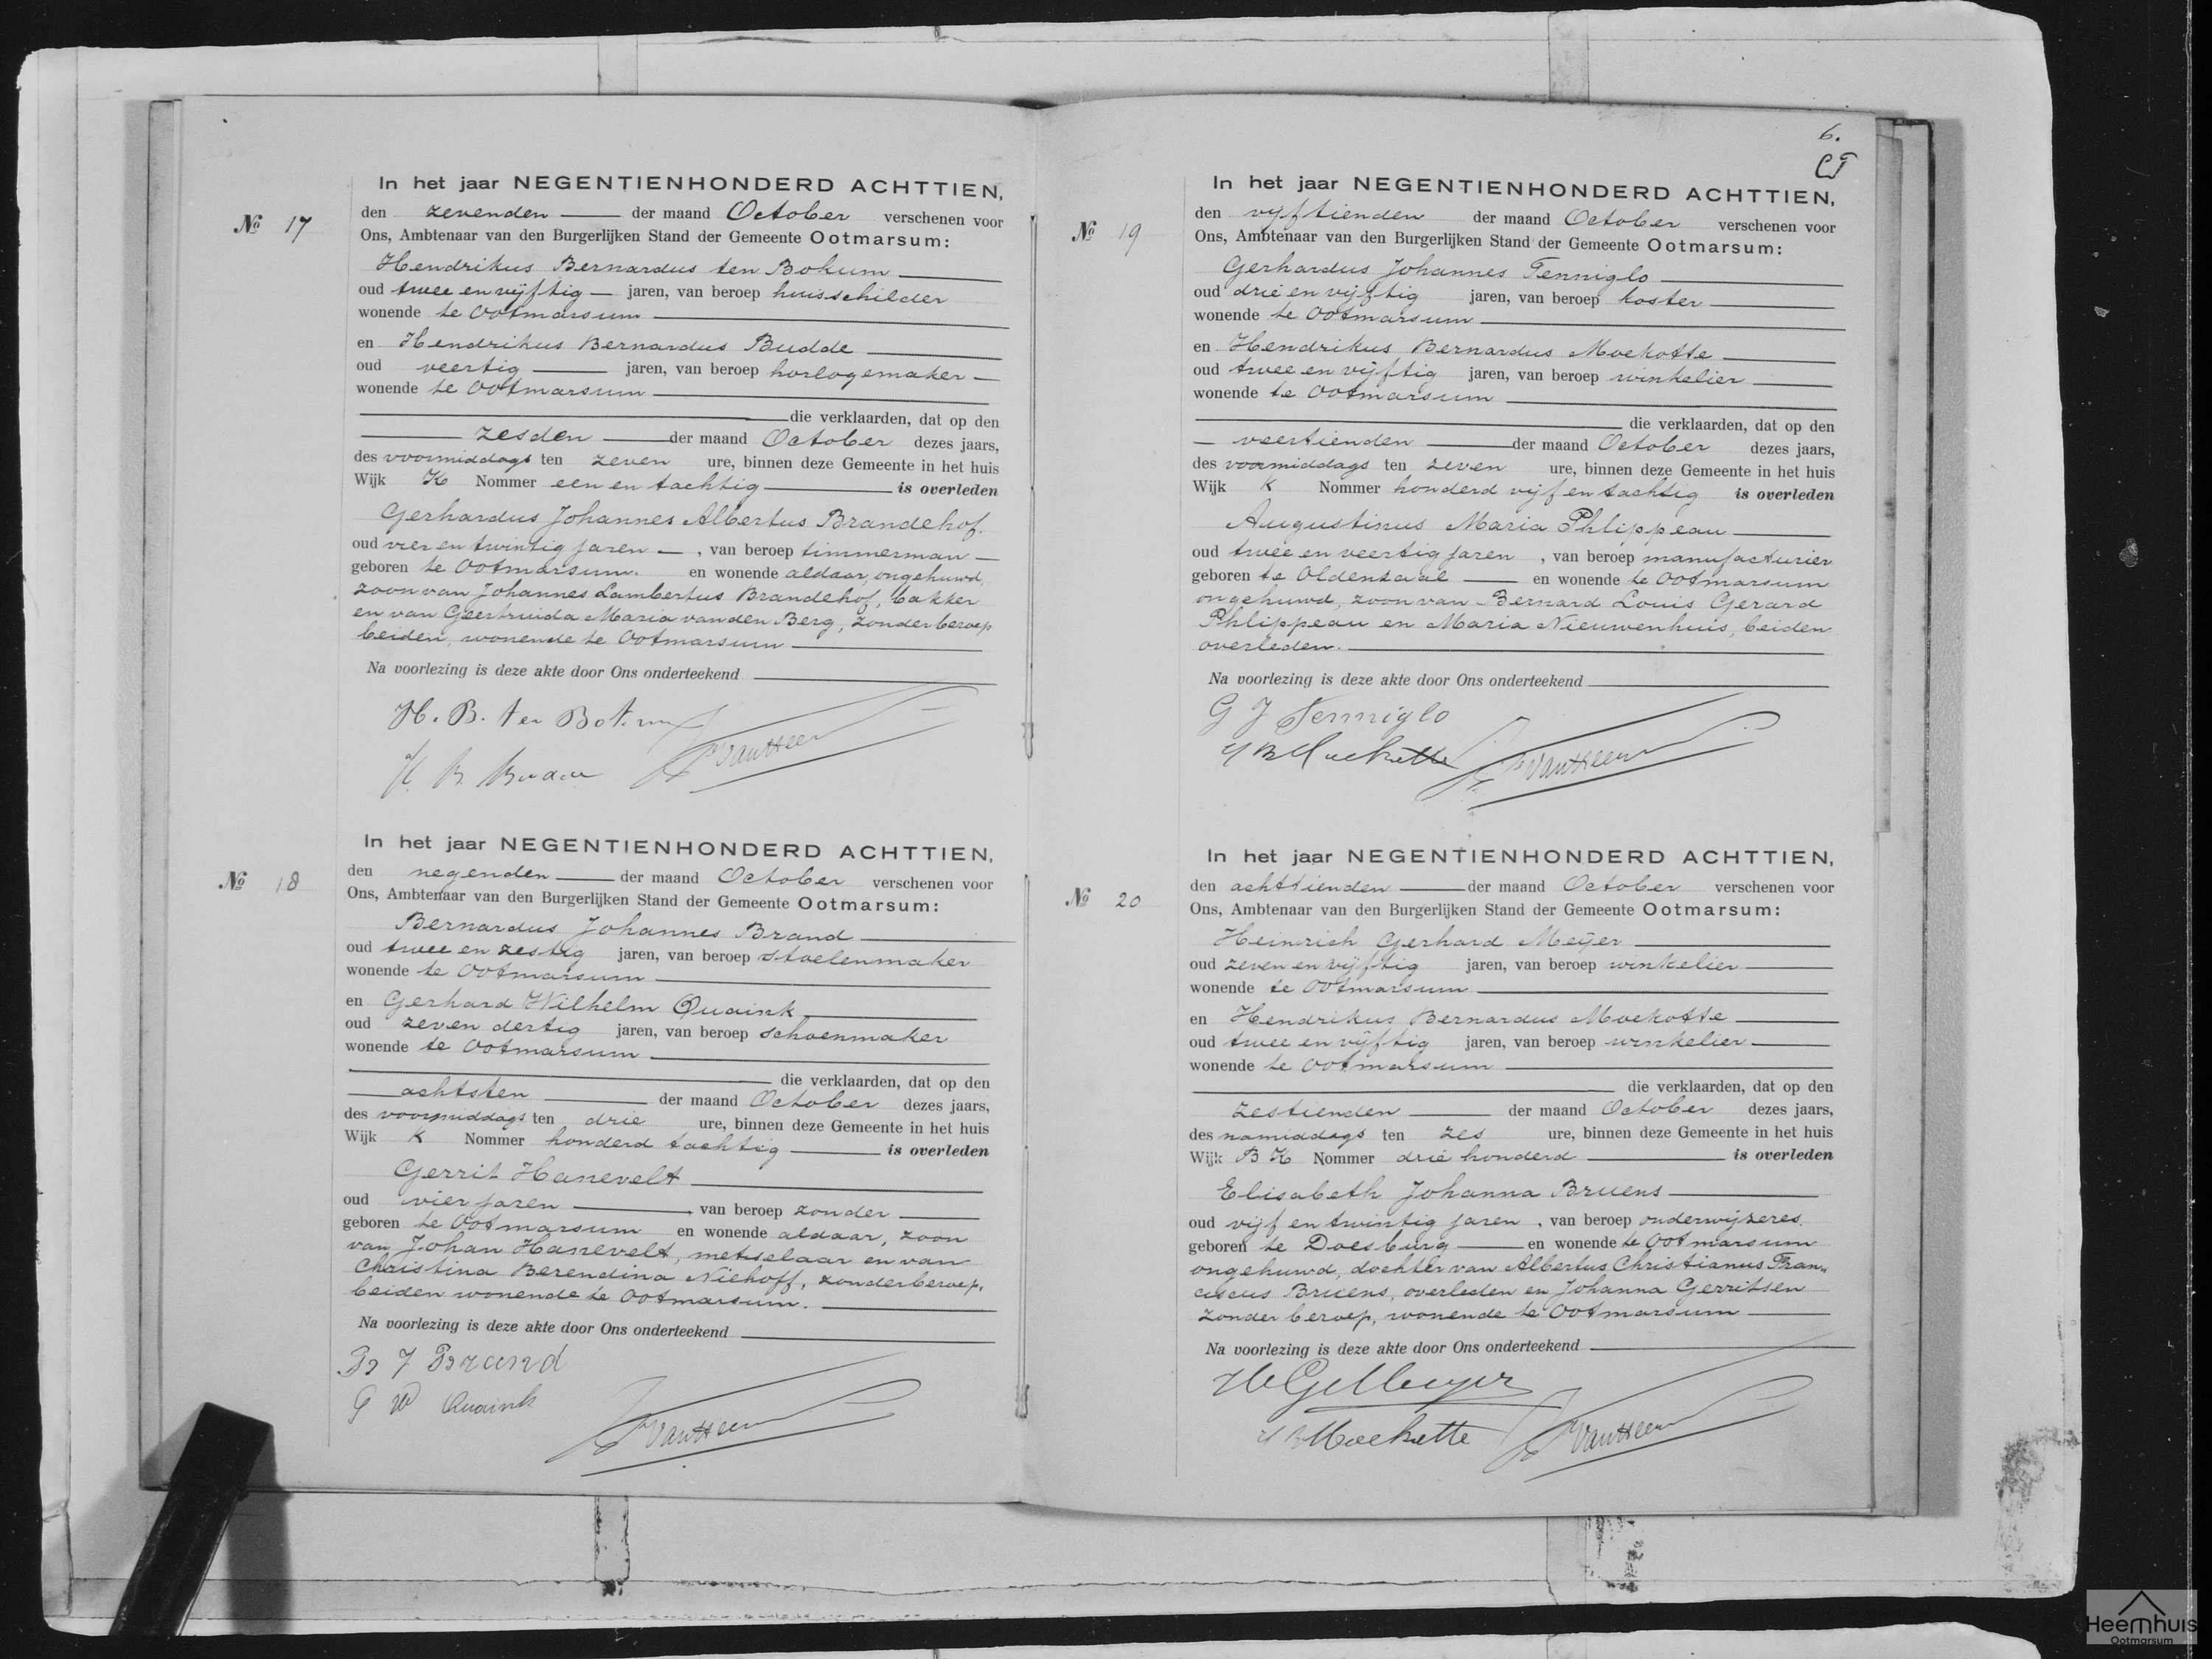 No 17
In het jaar NEGENTIENHONDERD ACHTTIEN,
den zevenden der maand October verschenen voor
Ons, Ambtenaar van den Burgerlijken Stand der Gemeente Ootmarsum:
Hendrikus Bernardus ten Bokum
oud twee en vijftig jaren, van beroep huisschilder
wonende te Ootmarsum
en Hendrikus Bernardus Budde
oud veertig jaren, van beroep horlogemaker
wonende te Ootmarsum
die verklaarden, dat op den
zesden der maand October dezes jaars,
des voormiddags ten zeven ure, binnen deze Gemeente in het huis
Wijk K Nommer een en tachtig is overleden
Gerhardus Johannes Albertus Brandehof.
oud vier en twintig jaren, van beroep timmerman
geboren te Ootmarsum. en wonende aldaar, ongehuwd,
zoon van Johannes Lambertus Brandehof, bakker
en van Geertruida Maria van den Berg, zonder beroep
beiden, wonende te Ootmarsum
Na voorlezing is deze akte door Ons onderteekend
H. B. ten Bokum
H. B. Budde
van Heek
No 18
In het jaar NEGENTIENHONDERD ACHTTIEN,
den negenden der maand October verschenen voor
Ons, Ambtenaar van den Burgerlijken Stand der Gemeente Ootmarsum:
Bernardus Johannes Brand
oud twee en zestig jaren, van beroep stoelenmaker
wonende te Ootmarsum
en Gerhard Wilhelm Quaink
oud zeven dertig jaren, van beroep schoenmaker
wonende te Ootmarsum
die verklaarden, dat op den
achtsten der maand October dezes jaars,
des voormiddags ten drie ure, binnen deze Gemeente in het huis
Wijk K Nommer honderd tachtig is overleden
Gerrit Hanevelt
oud vier jaren, van beroep zonder
geboren te Ootmarsum en wonende aldaar, zoon
van Johan Hanevelt, metselaar en van
Christina Berendina Niehoff, zonder beroep,
beiden wonende te Ootmarsum.
Na voorlezing is deze akte door Ons onderteekend
B J Brand
G W Quaink
6.
No 19
In het jaar NEGENTIENHONDERD ACHTTIEN,
den vijftienden der maand October verschenen voor
Ons, Ambtenaar van den Burgerlijken Stand der Gemeente Ootmarsum:
Gerhardus Johannes Tenniglo
oud drie en vijftig jaren, van beroep koster
wonende te Ootmarsum
en Hendrikus Bernardus Moekotte
oud twee en vijftig jaren, van beroep winkelier
wonende te Ootmarsum
die verklaarden, dat op den
veertienden der maand October dezes jaars,
des voormiddags ten zeven ure, binnen deze Gemeente in het huis
Wijk K Nommer honderd vijf en tachtig is overleden
Augustinus Maria Phlippeau
oud twee en veertig jaren, van beroep manufacturier
geboren te Oldenzaal en wonende te Ootmarsum
ongehuwd, zoon van Bernard Louis Gerard
Phlippeau en Maria Nieuwenhuis, beiden
overleden.
Na voorlezing is deze akte door Ons onderteekend
G J Tenniglo
H B Moekotte
No 20
In het jaar NEGENTIENHONDERD ACHTTIEN,
den achttienden der maand October verschenen voor
Ons, Ambtenaar van den Burgerlijken Stand der Gemeente Ootmarsum:
Heinrich Gerhard Meÿer
oud zeven en vijftig jaren, van beroep winkelier
wonende te Ootmarsum
en Hendrikus Bernardus Moekotte
oud twee en vijftig jaren, van beroep winkelier
wonende te Ootmarsum
die verklaarden, dat op den
zestienden der maand October dezes jaars,
des namiddags ten zes ure, binnen deze Gemeente in het huis
Wijk B K Nommer drie honderd is overleden
Elisabeth Johanna Bruens
oud vijf en twintig jaren, van beroep onderwijzeres.
geboren te Doesburg en wonende te Ootmarsum
ongehuwd, dochter van Albertus Christianus Fran„
ciscus Bruens, overleden en Johanna Gerritsen
zonder beroep, wonende te Ootmarsum
Na voorlezing is deze akte door Ons onderteekend
H G Meyer
H B Moekotte
Heemhuis
Ootmarsum